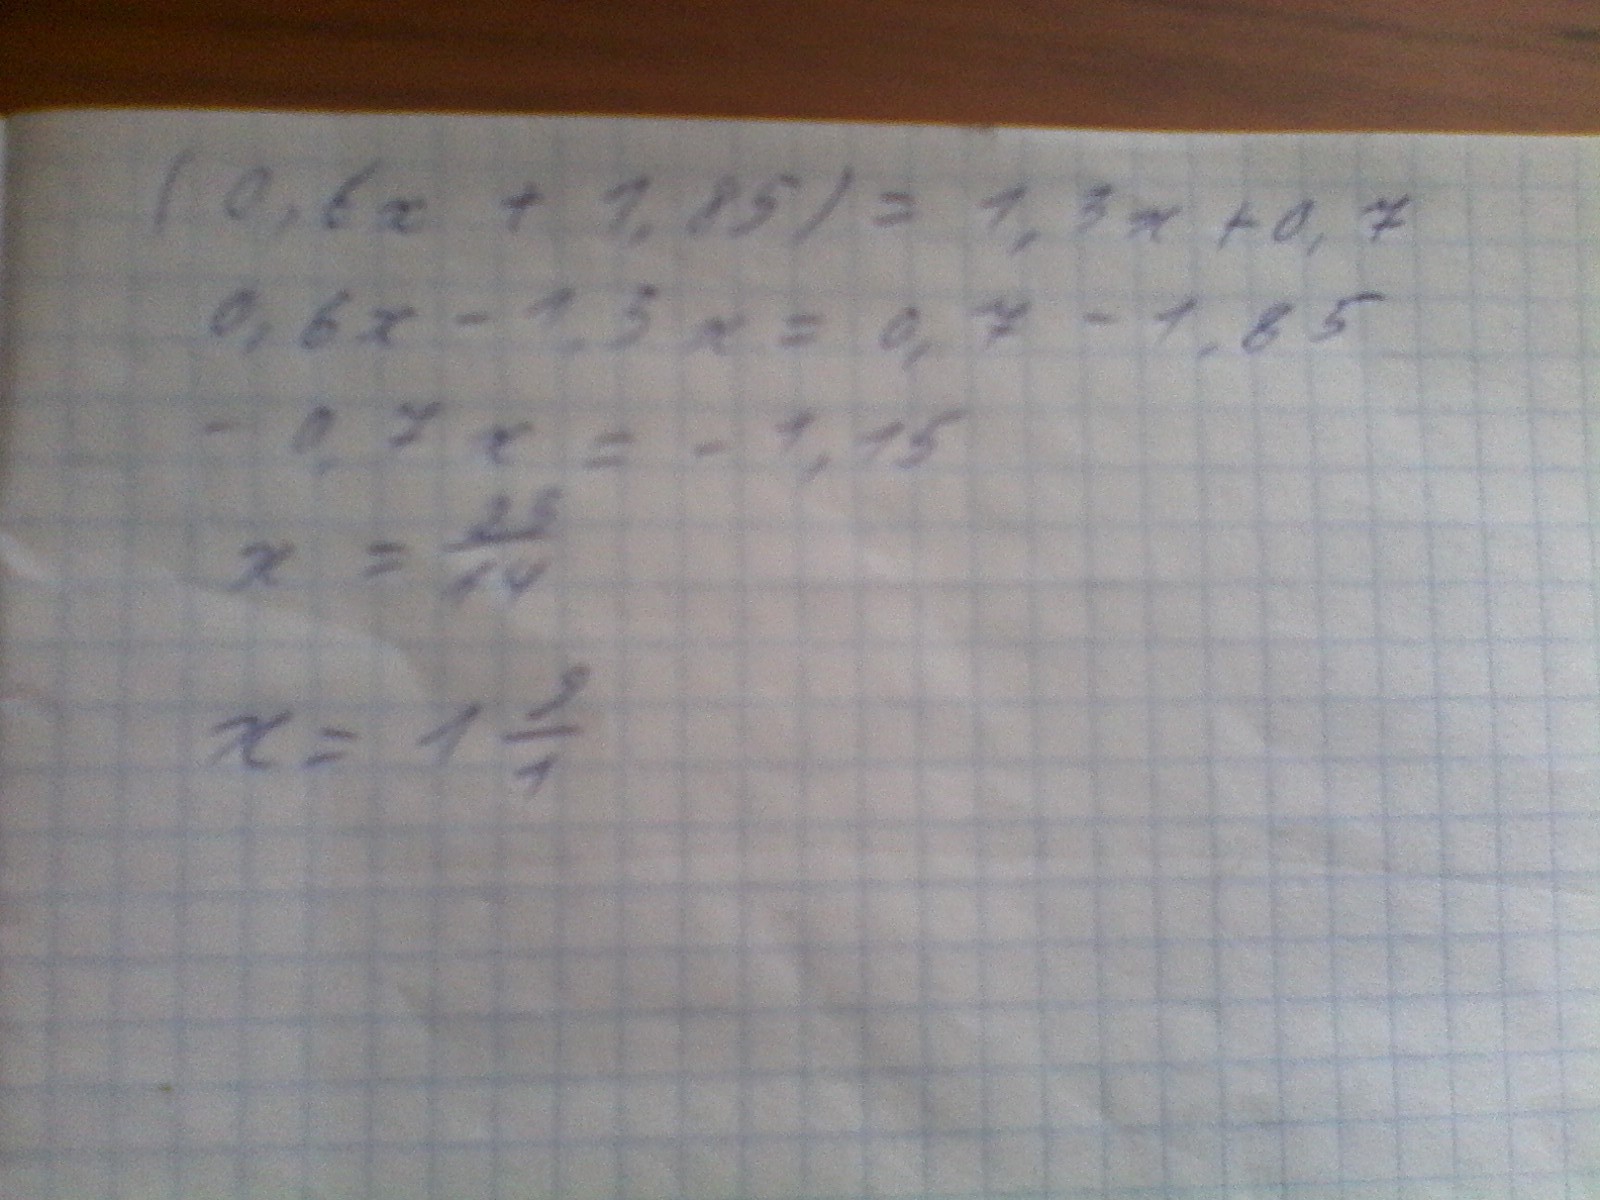 (0,6x + 1,85) = 1,3x + 0,7
0,6x - 1,3x = 0,7 - 1,85
- 0,7x = - 1,15
x = 23/14
x = 1 9/1